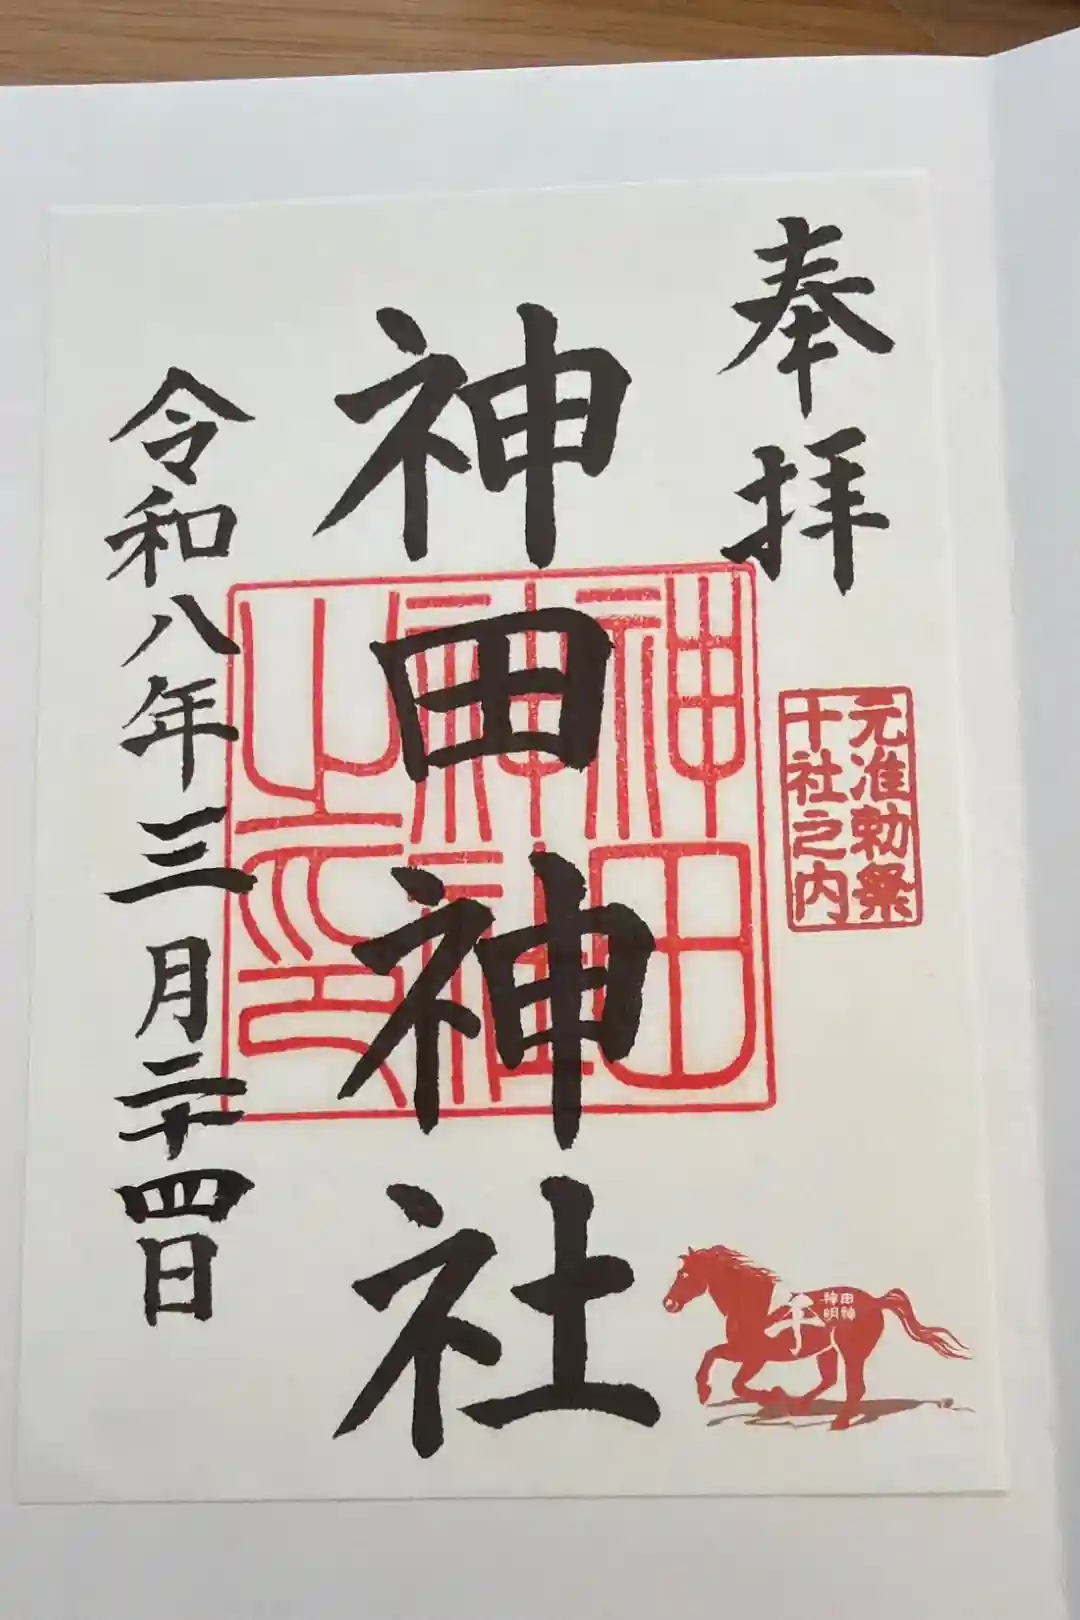 奉拝
元准勅祭
十社之内
神田神社
神田
神社
之印
午
田神
神明
令和八年三月二十四日